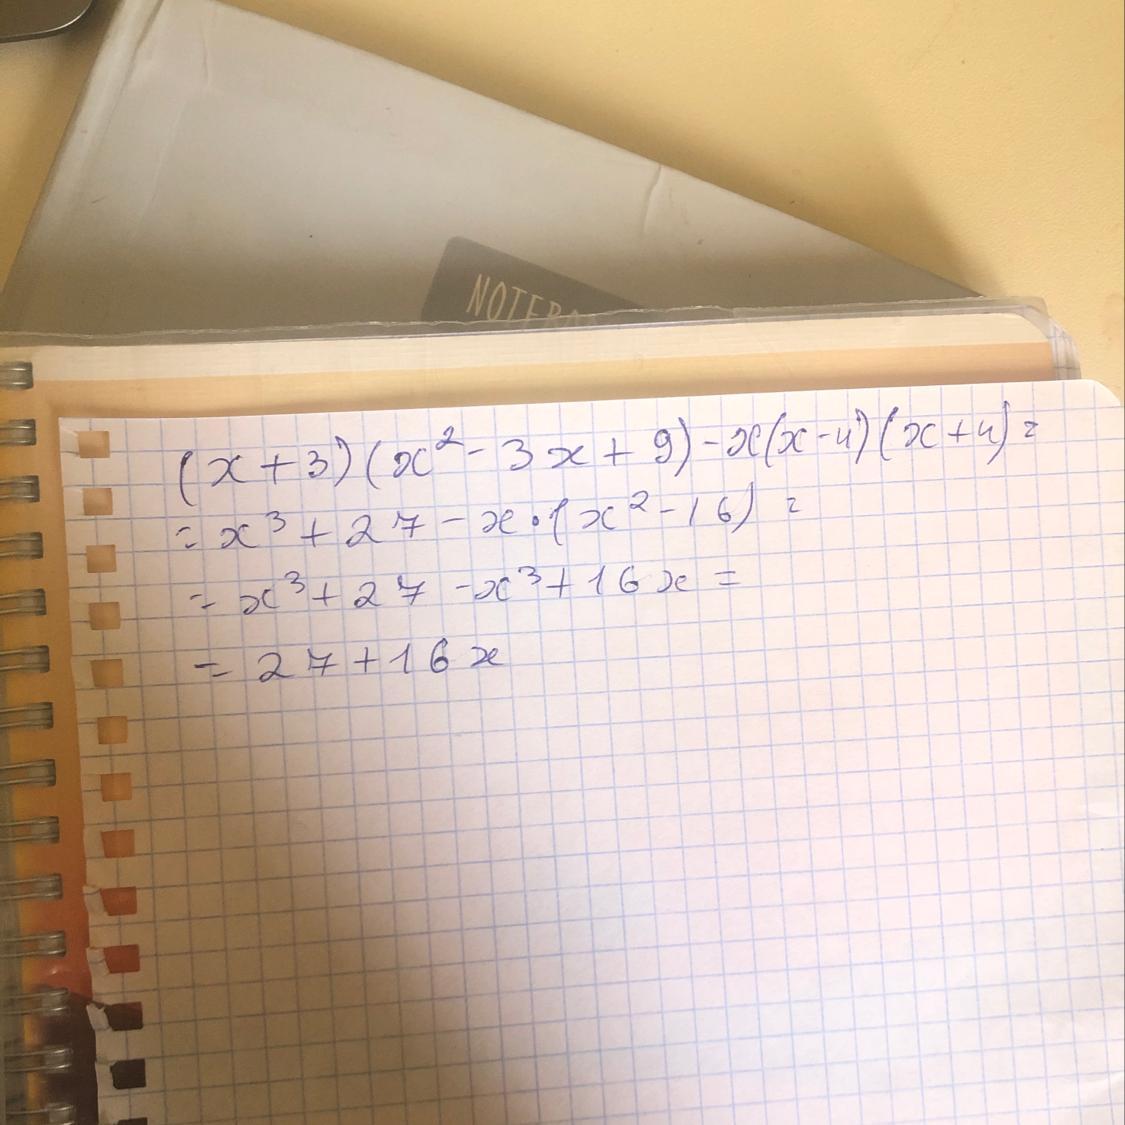 NOTEBO
(x+3)(x²-3x+9)-x(x-4)(x+4)=
=x³+27-x·(x²-16)=
=x³+27-x³+16x=
=27+16x